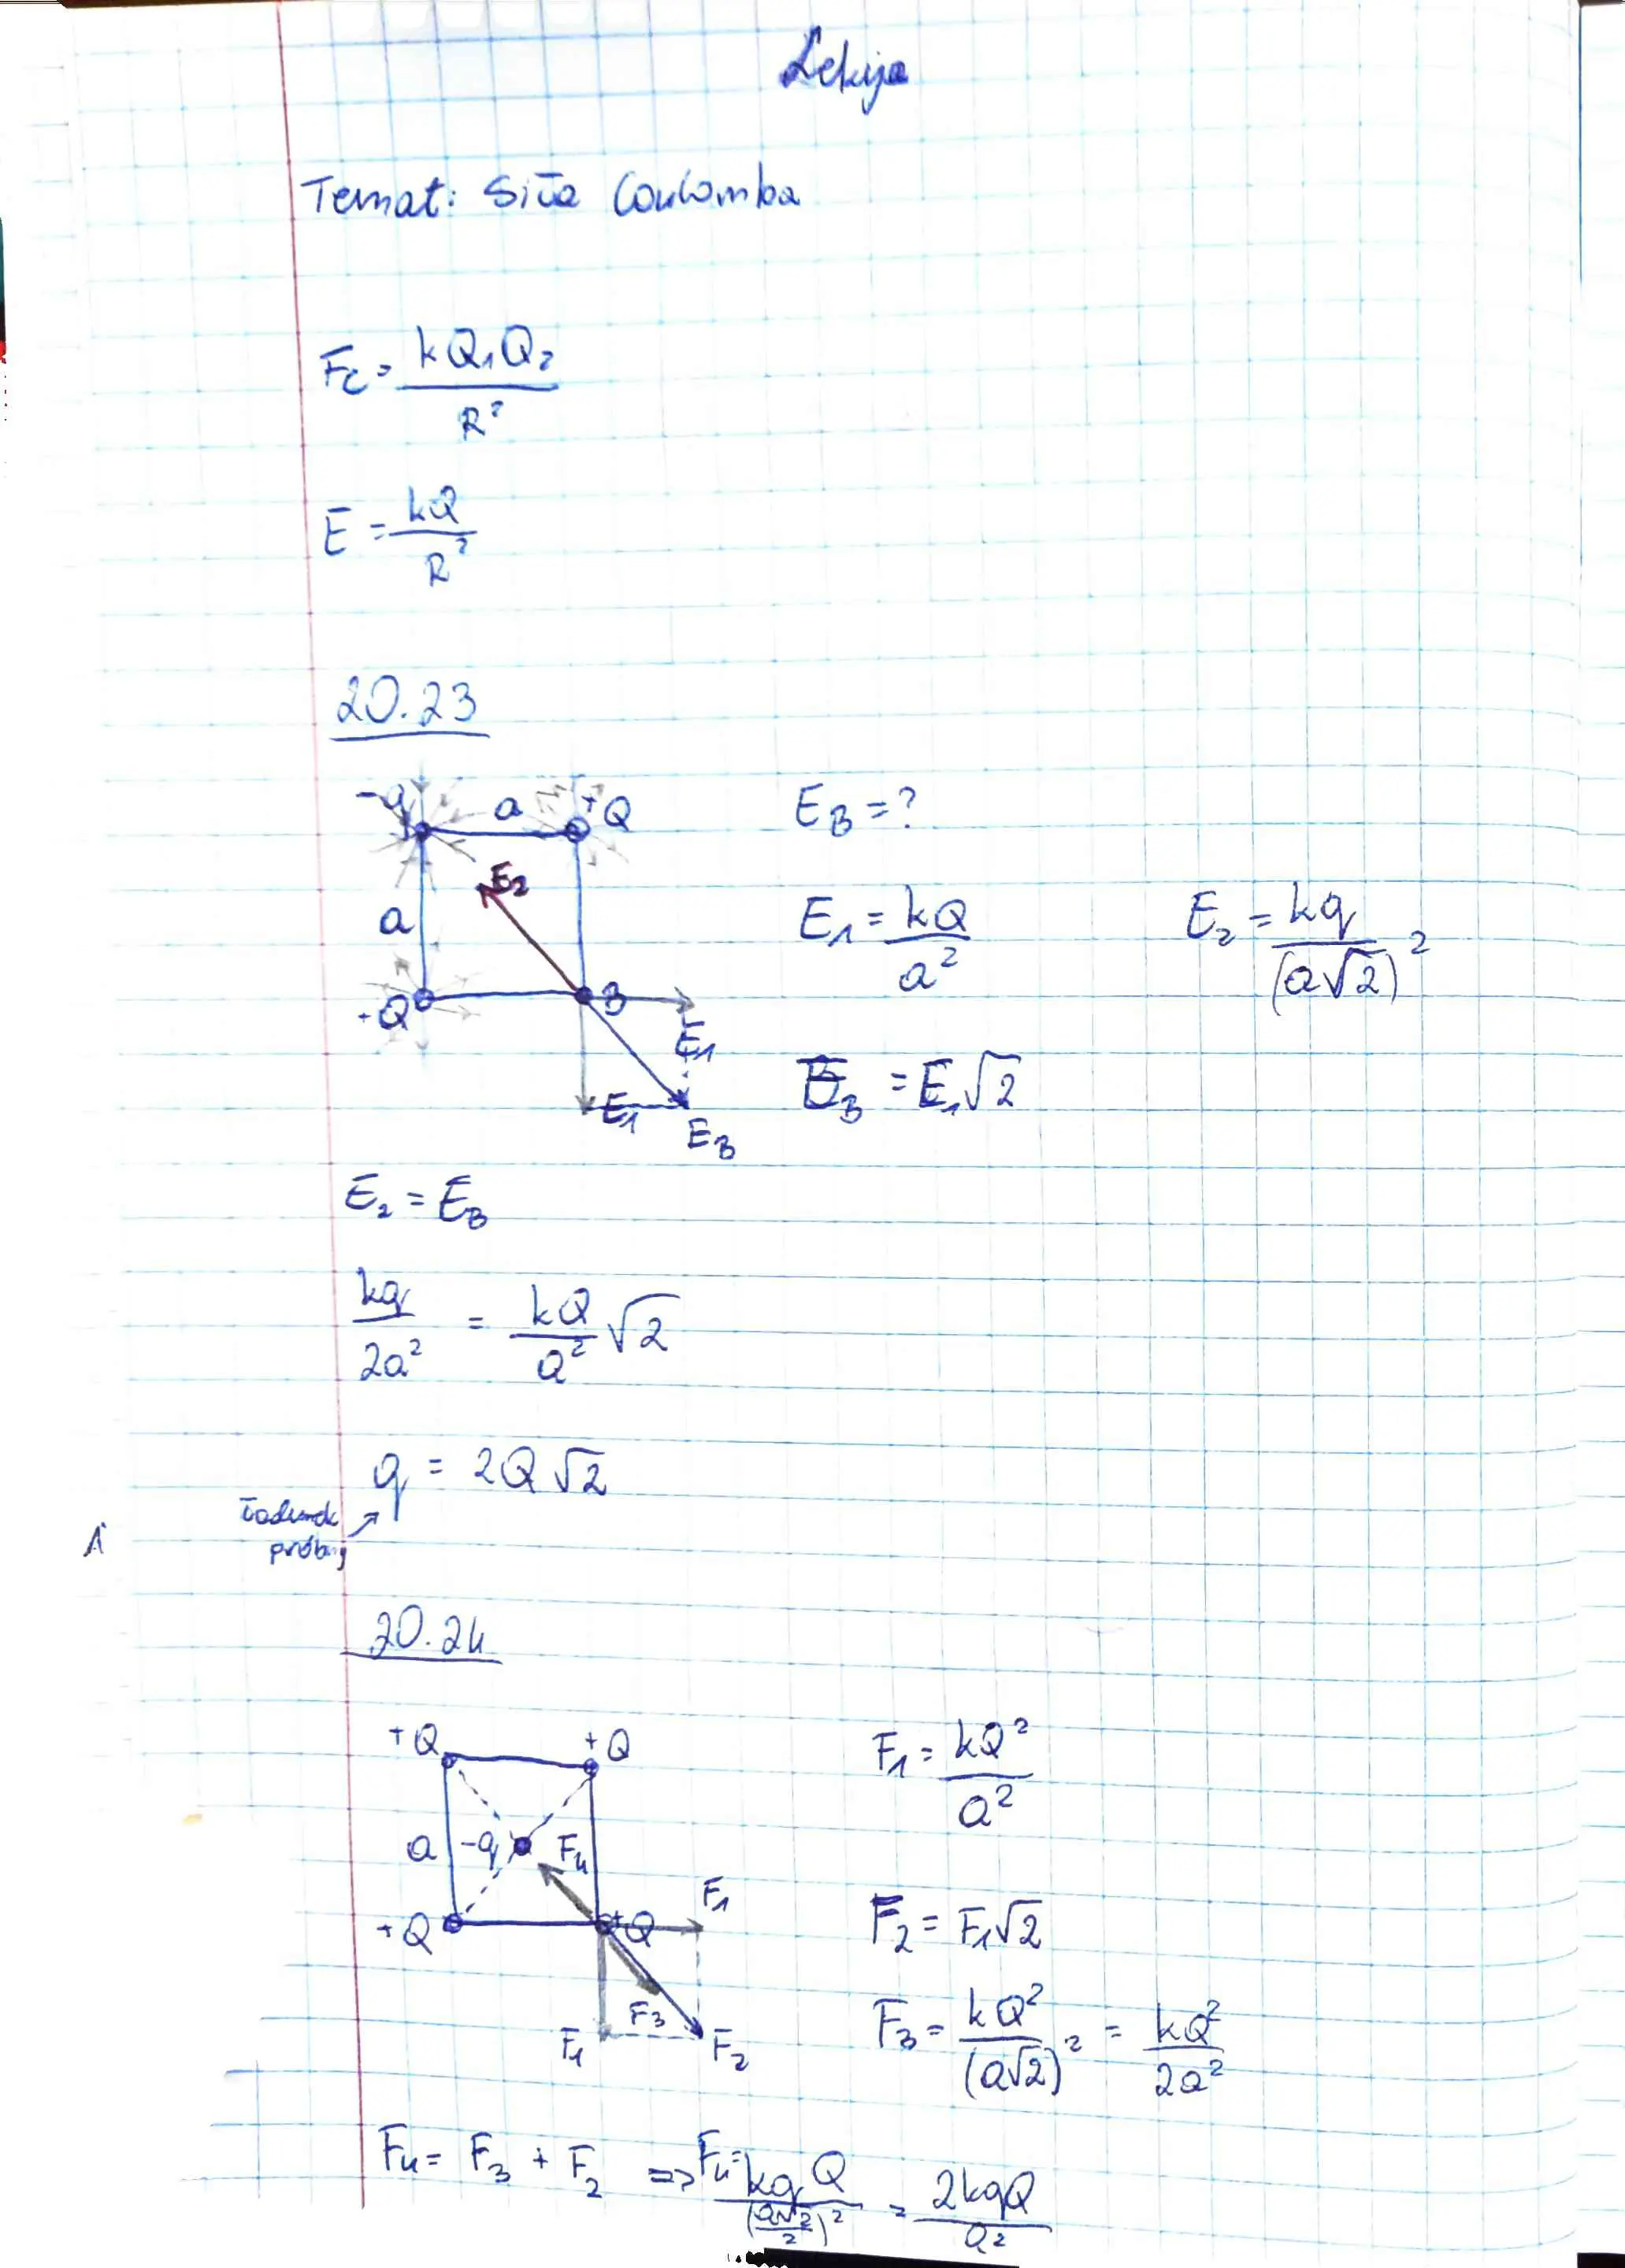 Lekcja
Temat: Siła Coulomba
Fc = kQ₁Q₂ / R²
E = kQ / R²
20.23
-q a +Q
E₂
a
+Q B
E₁
E₁
E_B
E_B = ?
E₁ = kQ / a²
E₂ = kq / (a√2)²
E_B = E₁√2
E₂ = E_B
kq / 2a² = kQ / a² √2
q = 2Q√2
ładunek
próbny
20.24
+Q +Q
a -q F₄
+Q +Q F₁
F₃
F₁ F₂
F₁ = kQ² / a²
F₂ = F₁√2
F₃ = kQ² / (a√2)² = kQ² / 2a²
F₄ = F₃ + F₂ => F₄ = kqQ / (a√2 / 2)² = 2kqQ / a²